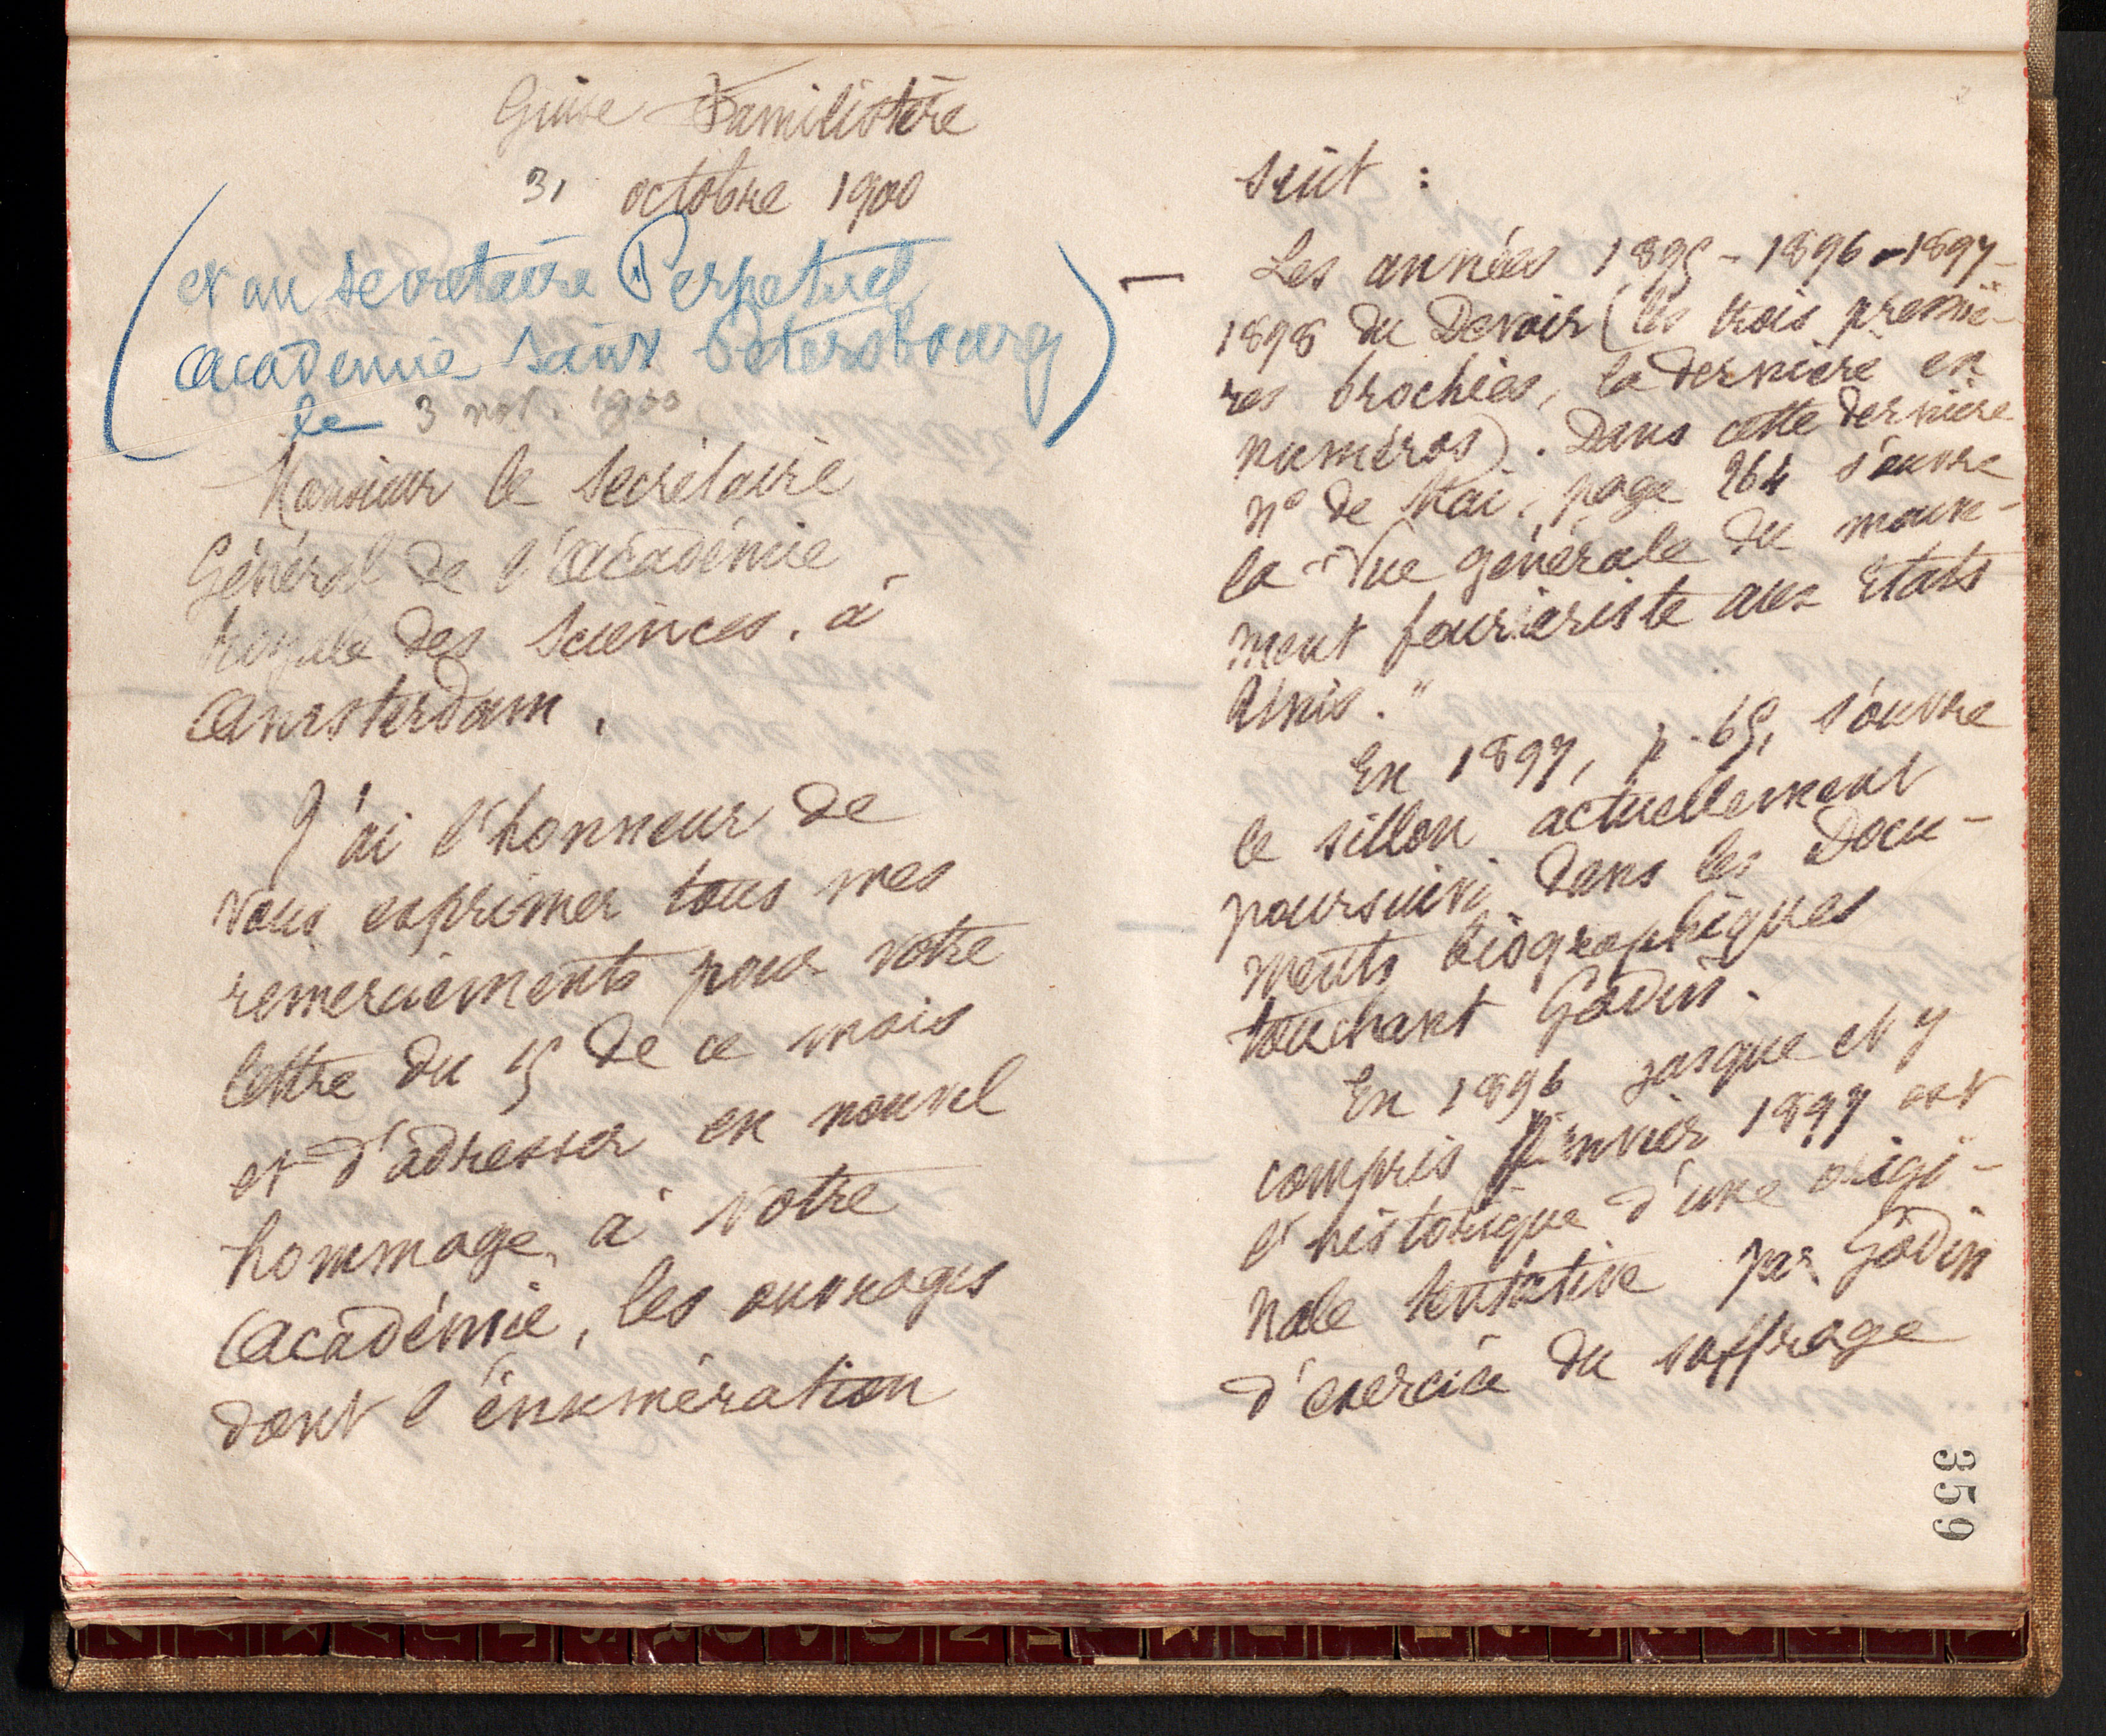 Guise Familistère
31 octobre 1900
(et au secrétaire Perpétuel
Académie Saint Pétersbourg)
le 3 nov. 1900
Monsieur le Secrétaire
Général de l'Académie
Royale des Sciences, à
Amsterdam.
J'ai l'honneur de
vous exprimer tous mes
remerciements pour votre
lettre du 15 de ce mois
et d'adresser en nouvel
hommage, à votre
Académie, les ouvrages
dont l'énumération
suit :
Les années 1895 - 1896 - 1897 -
1898 du Devoir (les trois premiè-
res brochées, la dernière en
numéros). Dans cette dernière
n° de Mai, page 264 s'ouvre
la "Vue générale du mouve-
ment fouriériste aux Etats
Unis."
En 1897, p. 65, s'ouvre
le sillon actuellement
poursuivi dans les Docu-
ments biographiques
touchant Godin.
En 1896 jusque et y
compris janvier 1897 est
l'historique d'une origi-
nale tentative par Godin
d'exercice du suffrage
359